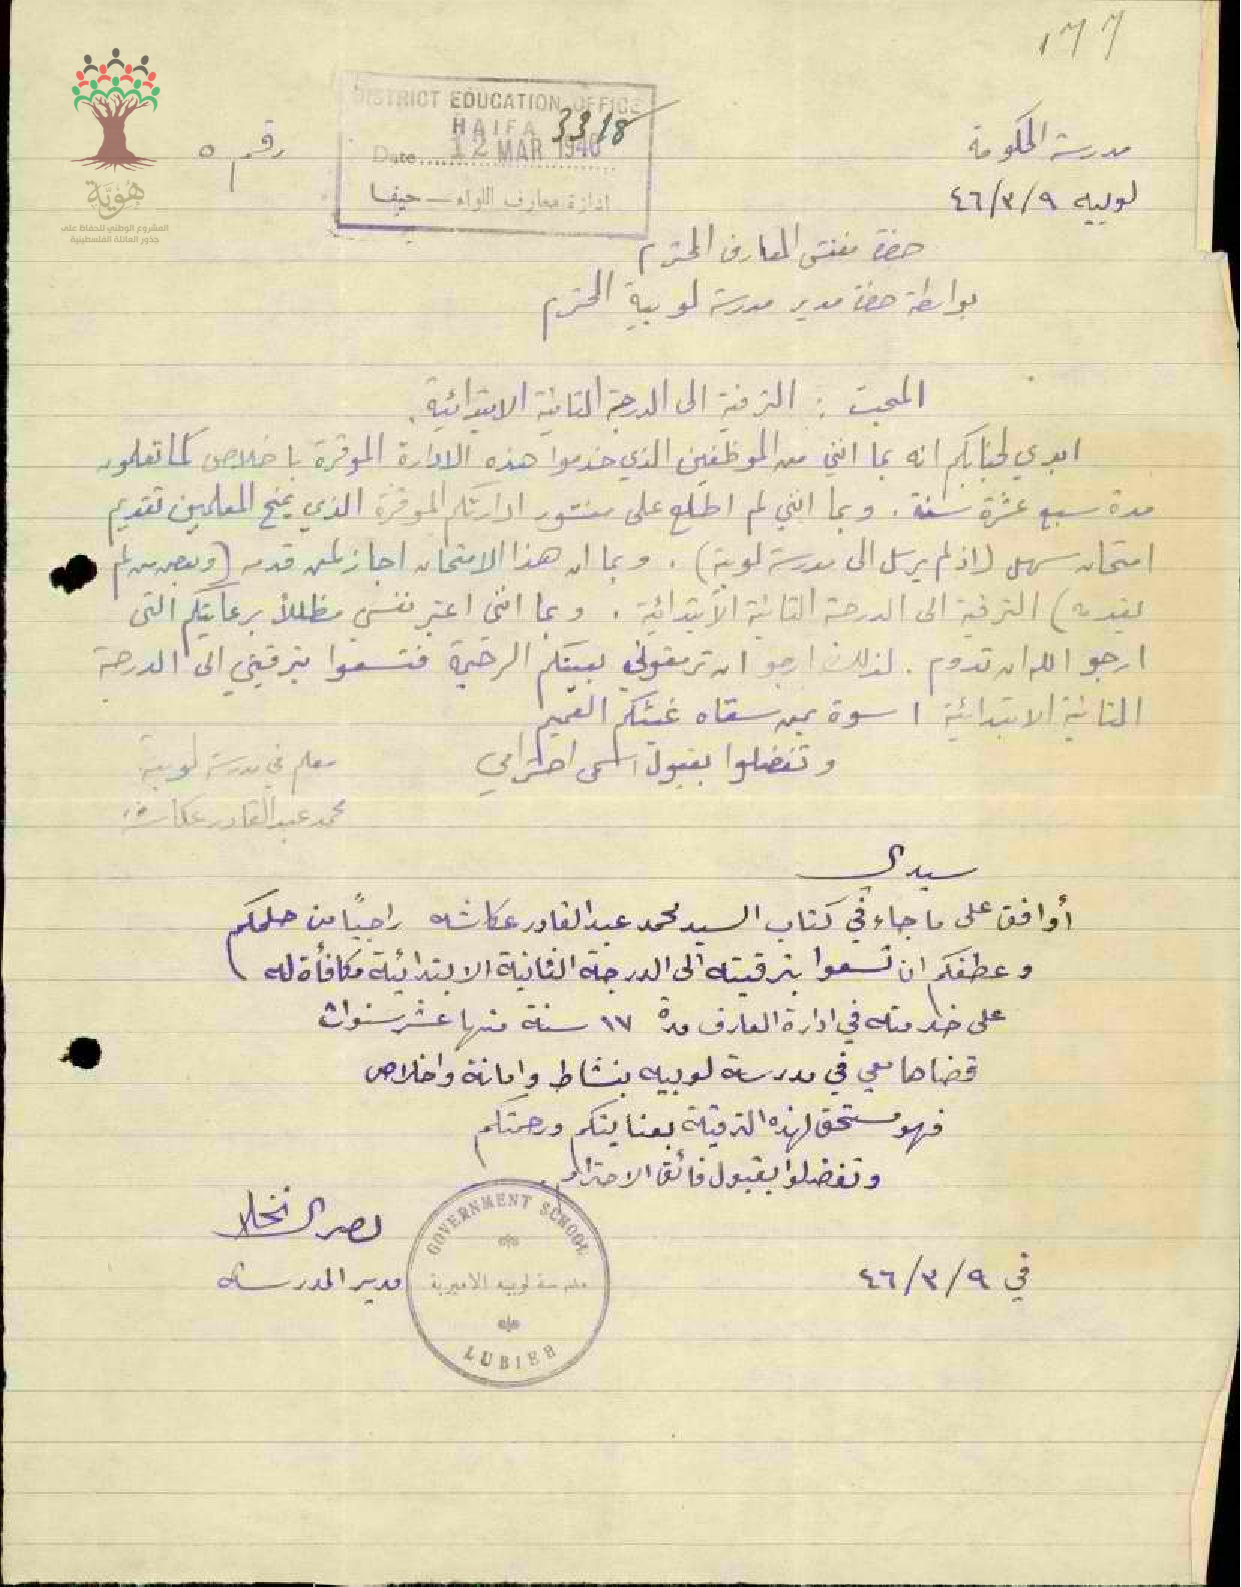 ١٦٦
DISTRICT EDUCATION OFFICE
HAIFA 3318
Date 12 MAR 1946
ادارة معارف اللواء – حيفا
هُوِيَّة
المشروع الوطني للحفاظ على
جذور العائلة الفلسطينية
رقم ٥
مدرسة الحكومة
لوبيه ٩/٣/٤٦
حضرة مفتش المعارف المحترم
بواسطة حضرة مدير مدرسة لوبية المحترم
المبحث : الترقية الى الدرجة الثانية الابتدائية.
ابدي لجنابكم انه بما انني من الموظفين الذي خدموا هذه الادارة الموقرة باخلاص كما تعلمون
مدة سبع عشرة سنة . وبما انني لم اطلع على منشور ادارتكم الموقرة الذي يمنح المعلمين تقديم
امتحان سهل (اذ لم يرسل الى مدرسة لوبية) . وبما ان هذا الامتحان اجاز لمن قدمه (وبعض من لم
يقدمه) الترقية الى الدرجة الثانية الابتدائية . وبما انني اعتبر نفسي مظللاً برعايتكم التي
ارجو الله ان تدوم . لذلك ارجو ان ترمقوني بعينكم الرحيمة فتسعوا بترقيتي الى الدرجة
الثانية الابتدائية اسوة بمن سقاه غيثكم العميم
وتفضلوا بقبول اسمى احترامي
معلم في مدرسة لوبية
محمد عبد القادر عكاشة
سيدي
أوافق على ما جاء في كتاب السيد محمد عبد القادر عكاشه راجيًا من حلمكم
وعطفكم ان تسعوا بترقيته الى الدرجة الثانية الابتدائية مكافأة له
على خدمته في ادارة المعارف مدة ١٧ سنة منها عشر سنوات
قضاها معي في مدرسة لوبيه بنشاط وامانة واخلاص
فهو مستحق لهذه الترقية بعنايتكم ورحمتكم
وتفضلوا بقبول فائق الاحترام.
مدير المدرسة
GOVERNMENT SCHOOL
مدرسة لوبيه الاميرية
LUBIEH
في ٩/٣/٤٦